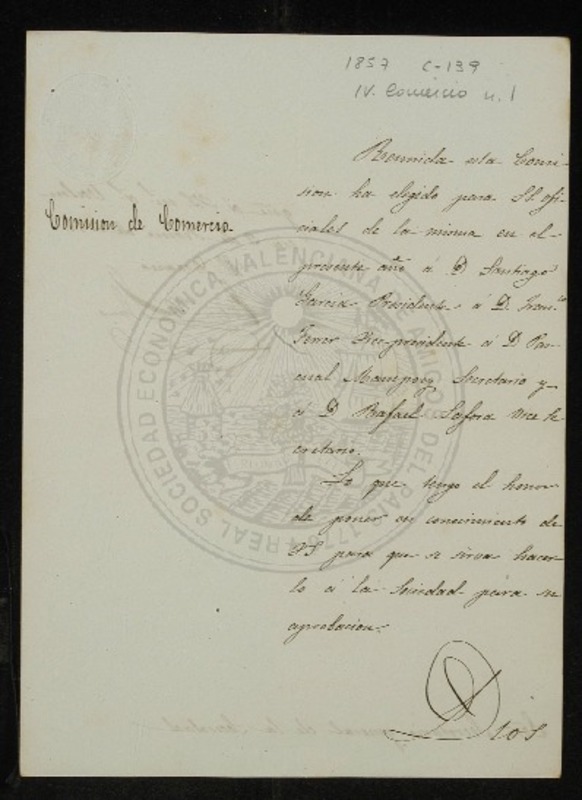 1857 C-139
IV. Comercio n. 1
Comision de Comercio
Reunida esta Comi-
sion ha elegido para SS. ofi-
ciales de la misma en el
presente año á D Santiago
Garcia Presidente á D. Fran.co
Ferrer Vice-presidente á D Pas-
cual Mampoey Secretario y
á D Rafael Safora Vice Se
cretario.
Lo que tengo el honor
de poner en conocimiento de
VS para que se sirva hacer-
lo á la Sociedad para su
aprobacion.
Dios
REAL SOCIEDAD ECONOMICA VALENCIANA DE AMIGOS DEL PAIS 1776